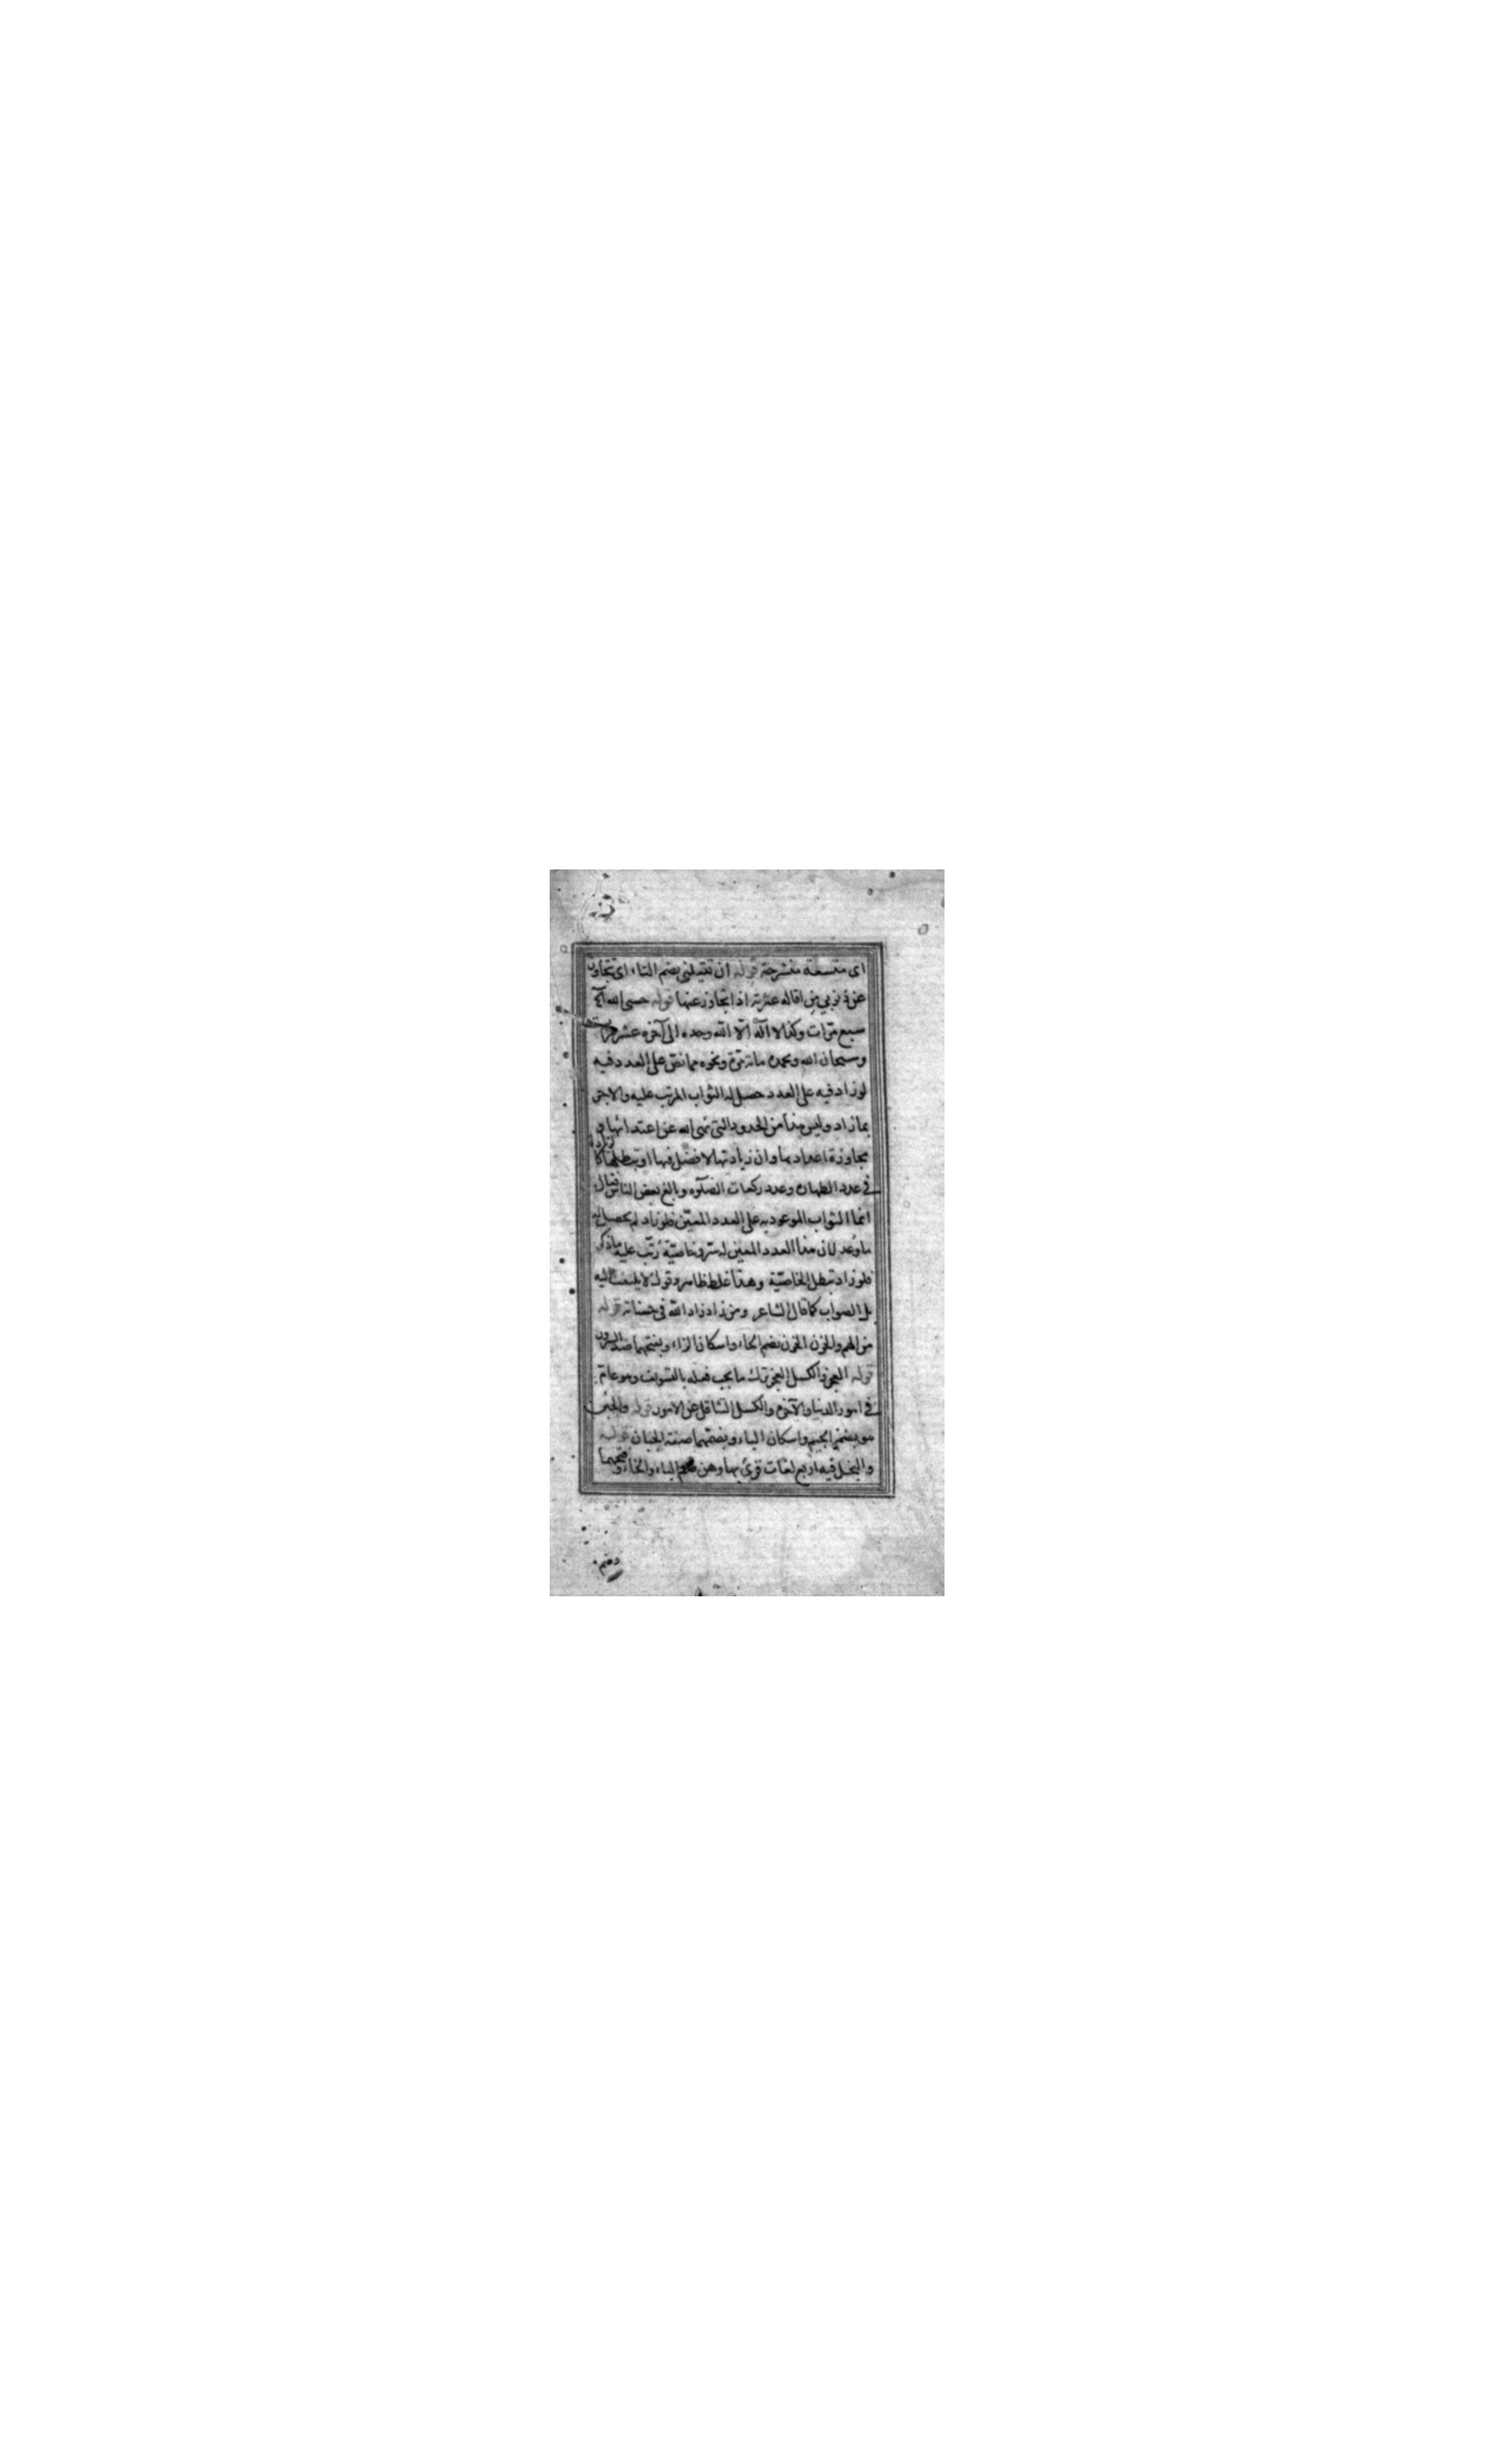 اى متسعة منشرحة قوله ان تقيلنى بضم التاء اى تتجاوز
عن ذنوبي من اقاله عثرته اذا تجاوز عنها قوله حسبى الله
سبع مرات وكذا لا اله الا الله وحده الى آخره عشر
وسبحان الله وبحمده مائة مرة ونحوه مما نص على العدد فيه
لو زاد فيه على العدد حصل له الثواب المرتب عليه والاجر
بما زاد وليس هذا من الحدود التى نهى الله عن اعتدائها و
مجاوزة اعدادها وان زيادتها لا فضل فيها او تبطلها كا
لزيادة
فى عدد الطهارة وعدد ركعات الصلوة وبالغ بعض الناس فقال
انما الثواب الموعود به على العدد المعين فلو زاد لم يحصل له
ما وعد لان هذا العدد المعين له سر وخاصية رتب عليه ما ذكر
فلو زاد تبطل الخاصية وهذا غلط ظاهر وقول لا يلتفت اليه
بل الصواب كما قال الشاعر ومن زاد زاد الله فى حسناته قوله
من الهم والحزن الحزن بضم الحاء واسكان الزاء وبفتحهما ضد السرور
قوله العجز والكسل العجز ترك ما يجب فعله بالتسويف وهو عام
فى امور الدنيا والآخرة والكسل التثاقل عن الامور قوله والجبن
هو بضم الجيم واسكان الباء وبضمهما صفة الجبان قوله
والبخل فيه اربع لغات قرئ بها وهن الباء والخاء وفتحهما
وضم